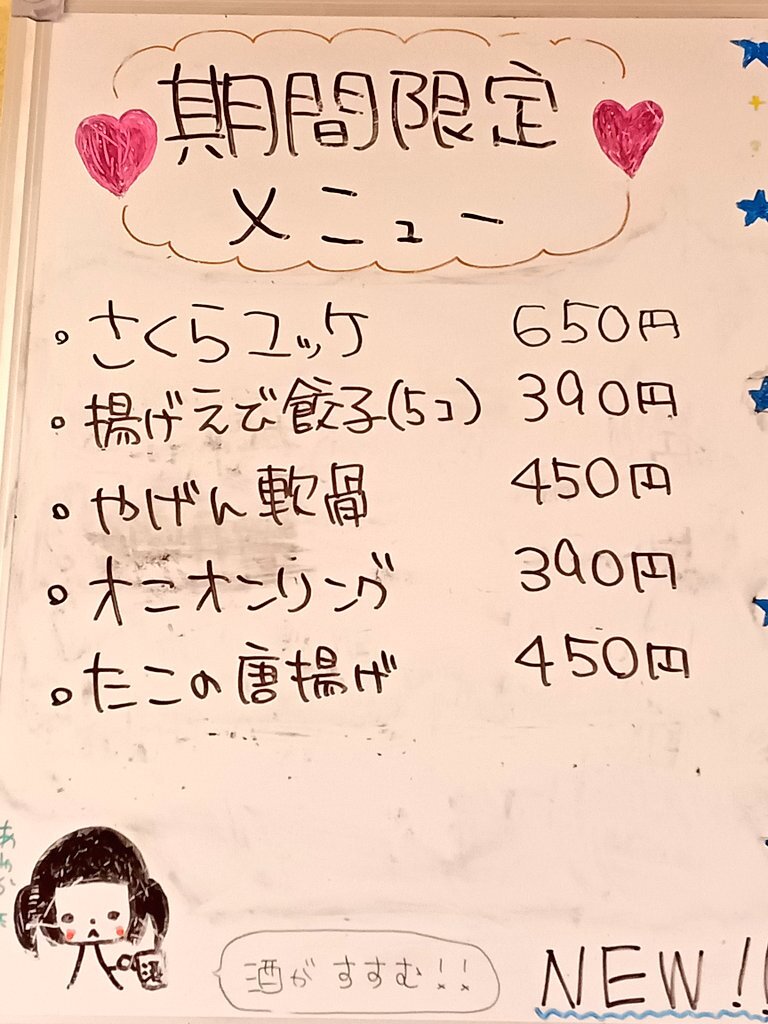 期間限定
メニュー
。さくらユッケ 650円
。揚げえび餃子(5コ) 390円
。やげん軟骨 450円
。オニオンリング 390円
。たこの唐揚げ 450円
酒がすすむ!!
NEW!!